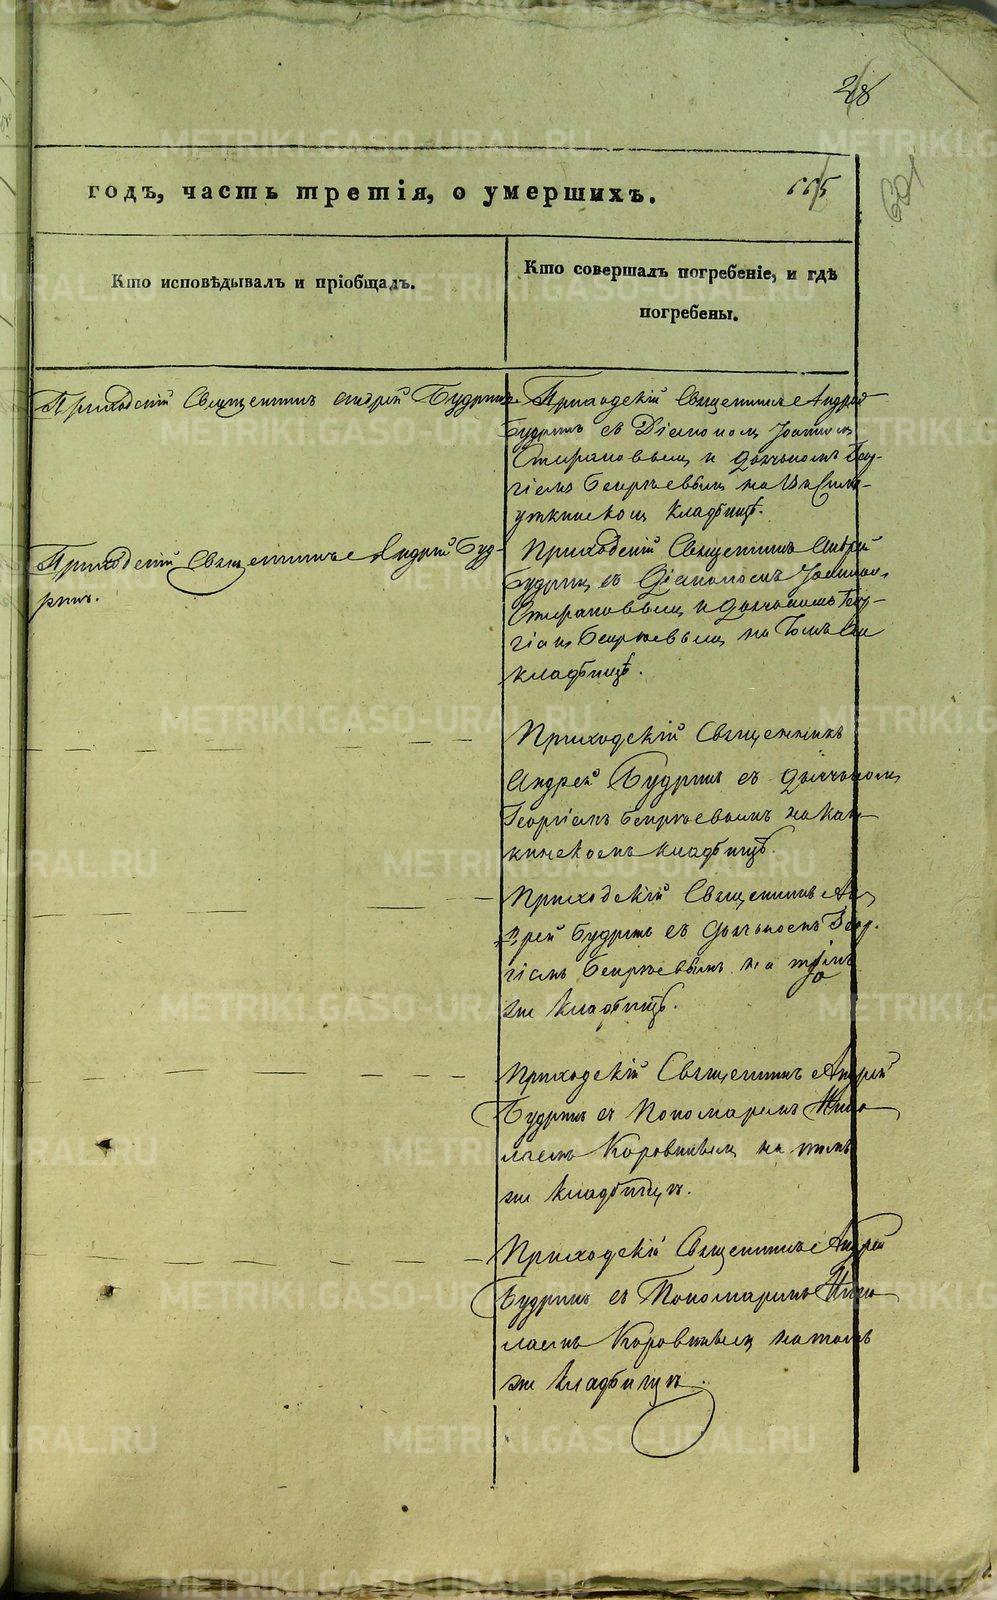 28
601
годъ, часть третія, о умершихъ.
665
Кто исповѣдывалъ и пріобщалъ.
Кто совершалъ погребеніе, и гдѣ
погребены.
Приходскій Священникъ Андрей Будринъ
Приходскій Священникъ Андрей
Будринъ съ Діакономъ Іоанномъ
и дьячкомъ Геор-
гіемъ на
уткинскомъ кладбищѣ.
Приходскій Священникъ Андрей Буд-
ринъ.
Приходскій Священникъ Андрей
Будринъ съ Діакономъ Іоанномъ
и дьячкомъ Геор-
гіемъ на томъ же
кладбищѣ.
Приходскій Священникъ
Андрей Будринъ съ дьячкомъ
Георгіемъ на
кинскомъ кладбищѣ.
Приходскій Священникъ Ан-
дрей Будринъ съ Дьячкомъ Геор-
гіемъ на томъ
же кладбищѣ.
Приходскій Священникъ Андрей
Будринъ съ Пономаремъ Нико-
лаемъ Коровинымъ на томъ
же кладбищѣ.
Приходскій Священникъ Андрей
Будринъ съ Пономаремъ Нико-
лаемъ Коровинымъ на томъ
же кладбищѣ.
METRIKI.GASO-URAL.RU